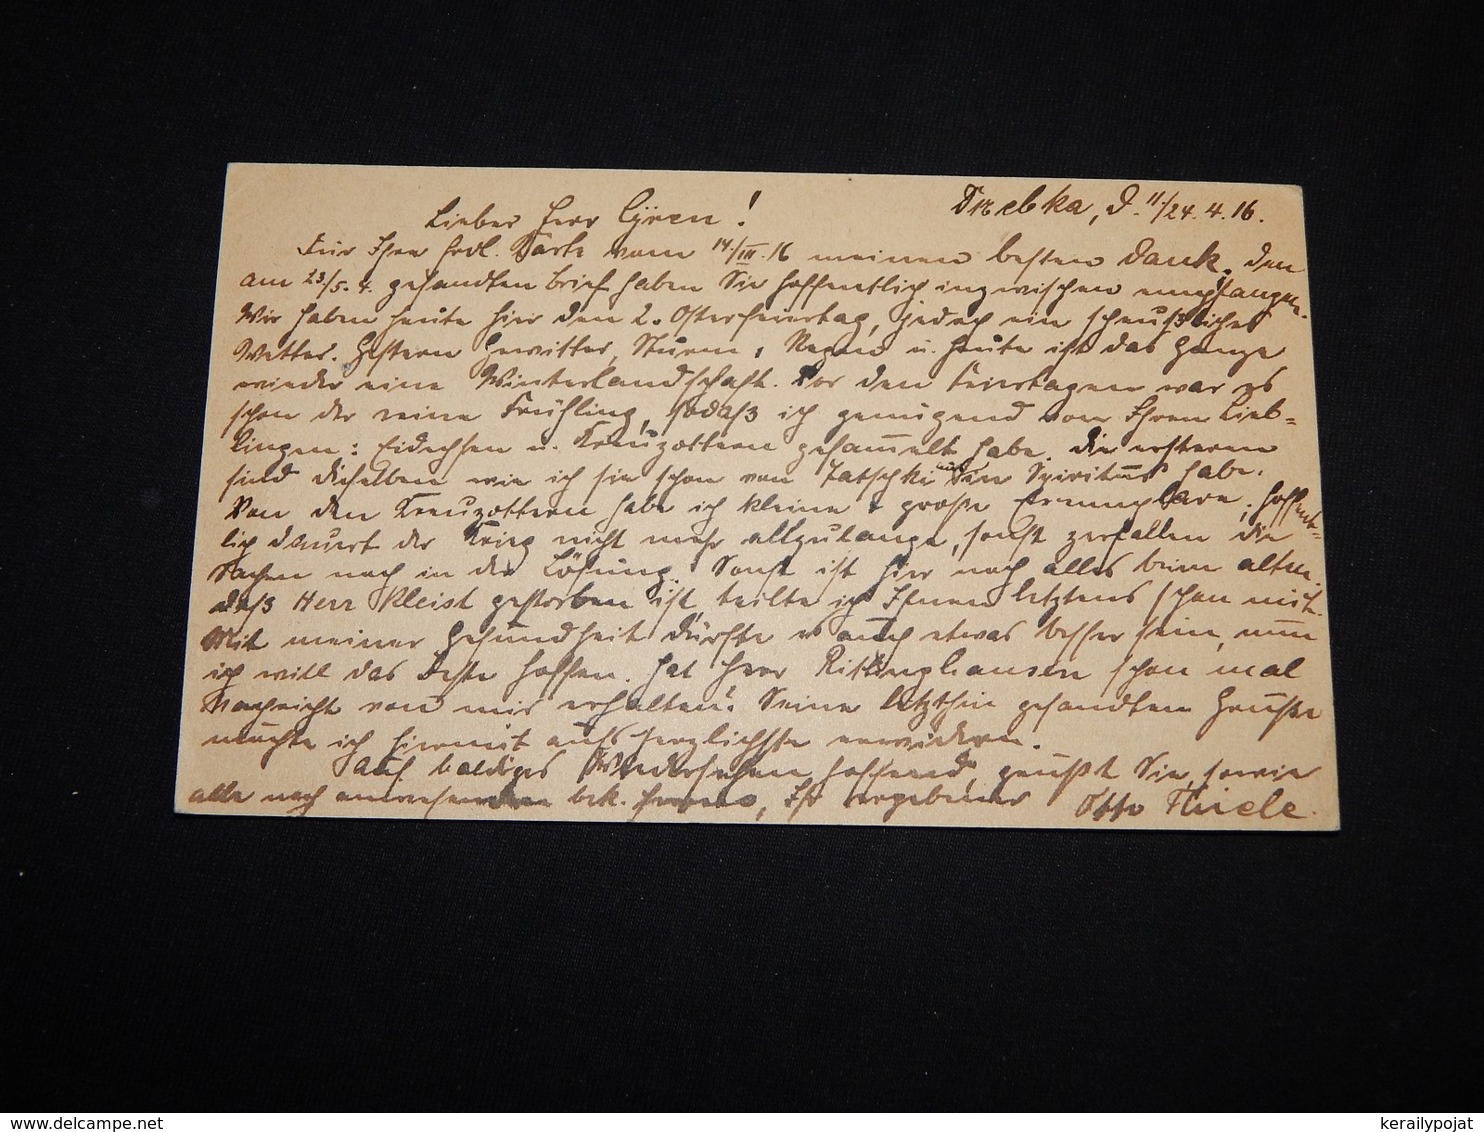 Drebka, d. 11./24. 4. 16.
Lieber Herr Gÿren!
Für Ihre frdl. Karte vom 14./III. 16 meinen besten Dank. Den
am 23/5. 4. gesandten Brief haben Sie hoffentlich inzwischen empfangen.
Wir haben heute hier den 2. Osterfeiertag, jedoch ein scheußliches
Wetter. Gestern Gewitter, Sturm, Regen u. heute ist das Ganze
wieder eine Winterlandschaft. Vor den Feiertagen war es
schon der reine Frühling, sodaß ich genügend von Ihren Lieb=
lingen: Eidechsen u. Kreuzottern gesammelt habe. Die ersteren
sind dieselben wie ich sie schon von Tatschki in Spiritus habe.
Von den Kreuzottern habe ich kleine & große Exemplare, hoffent=
lich dauert der Krieg nicht mehr allzulange, sonst zerfallen die
Sachen noch in der Lösung. Sonst ist hier noch alles beim alten.
daß Herr Kleist gestorben ist, teilte ich Ihnen letztens schon mit.
Mit meiner Gesundheit dürfte es auch etwas besser sein, nun
ich will das Beste hoffen. Hat Herr Rittinghausen schon mal
Nachricht von mir erhalten? Seine letzthin gesandten Grüße
möchte ich hiermit aufs herzlichste erwidern.
Auf baldiges Wiedersehen hoffend, grüßt Sie, sowie
alle noch anwesenden bek. Herren, Ihr ergebener Otto Thiele.
kerailypojat